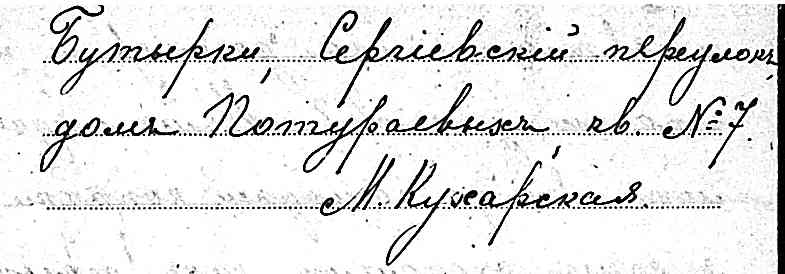 Бутырки, Сергіевскій переулокъ,
домъ Потураевыхъ, кв. № 7.
М. Кухарская.